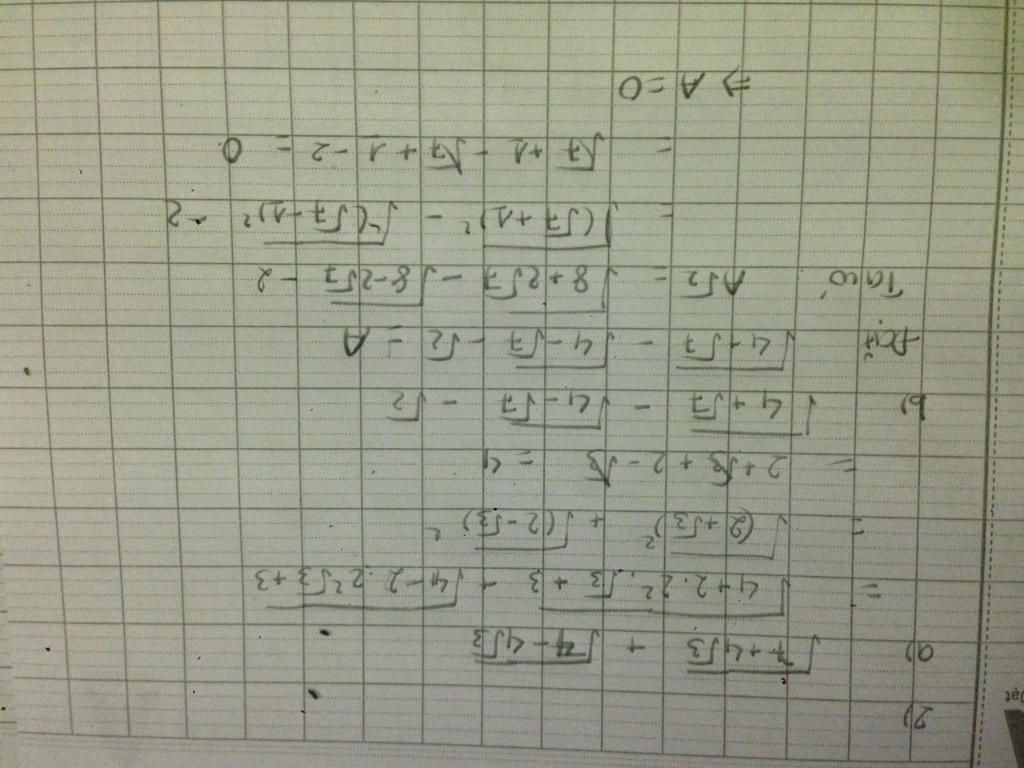 2)
a) √(7+4√3) + √(7-4√3)
= √(4+2.2².√3+3) + √(4-2.2²√3+3)
= √(2+√3)² + √(2-√3)²
= 2+√3 + 2-√3 = 4
b) √(4+√7) - √(4-√7) - √2
Đặt √(4+√7) - √(4-√7) - √2 = A
Ta có A√2 = √(8+2√7) - √(8-2√7) - 2
= √(√7+1)² - √(√7-1)² - 2
= √7+1 - √7+1 - 2 = 0
⇒ A = 0